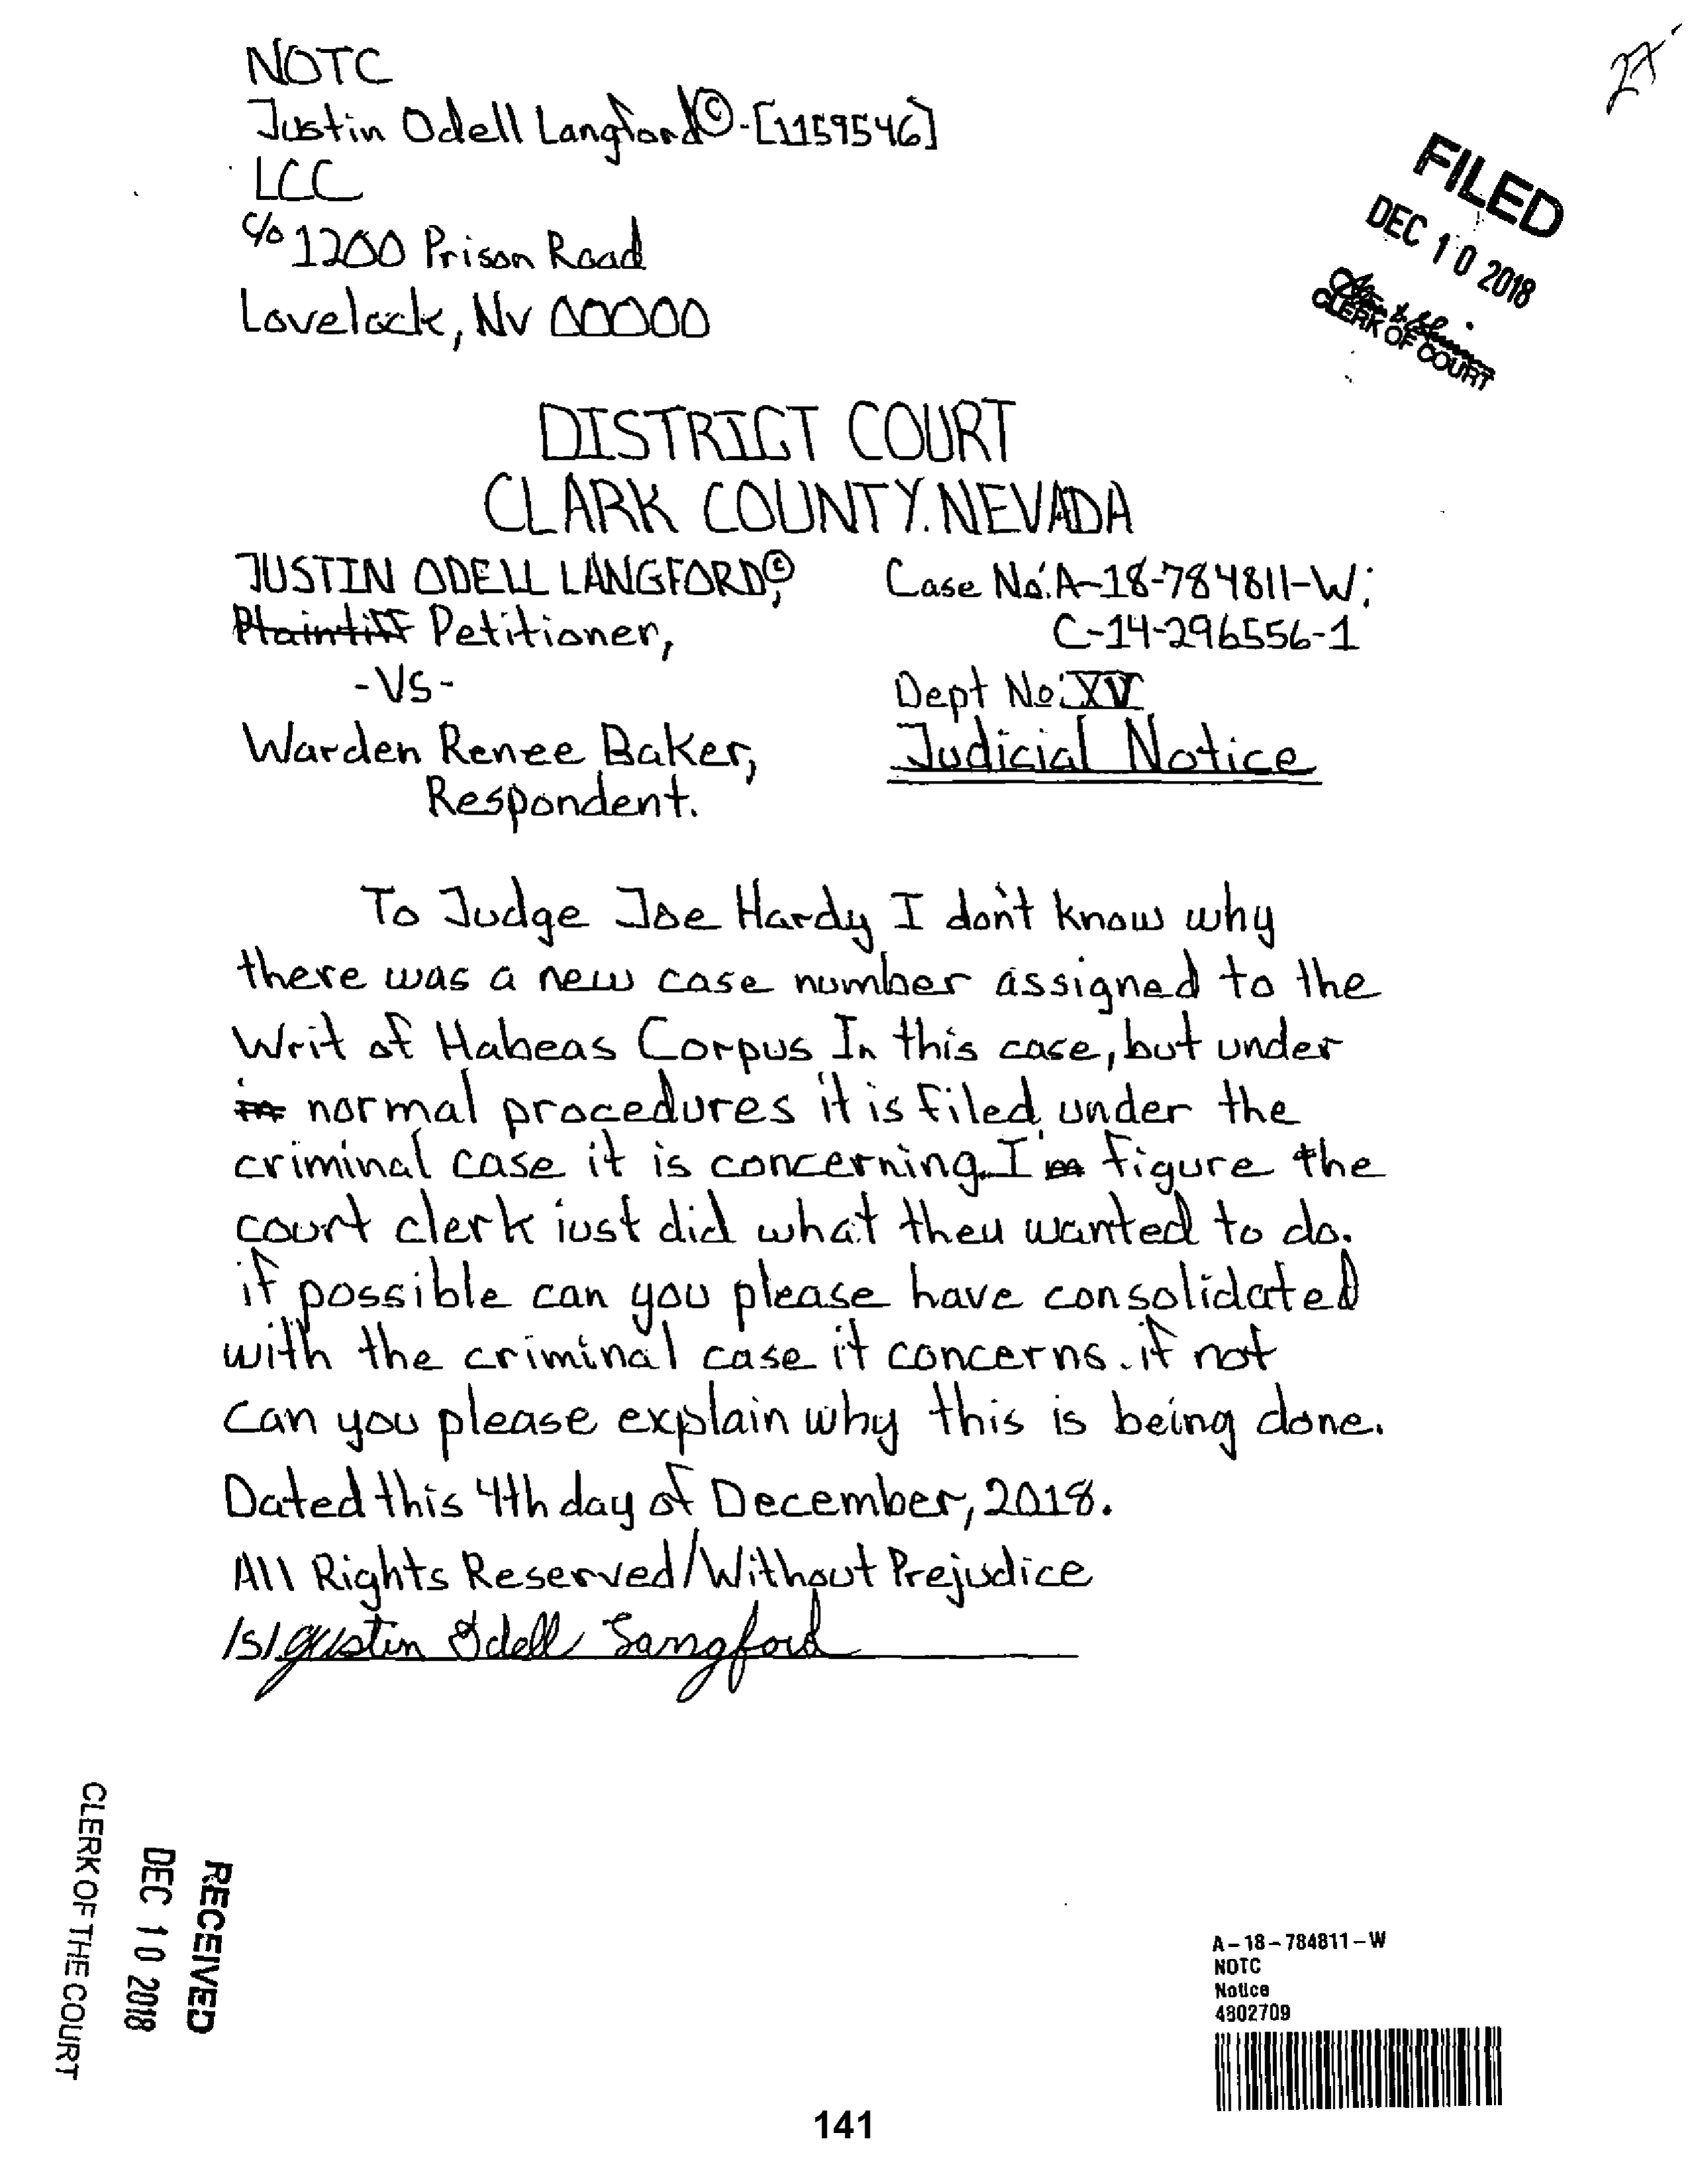 NOTC
Justin Odell Langford©-[1159546]
LCC
c/o 1200 Prison Road
Lovelock, NV 00000
FILED
DEC 10 2018
CLERK OF COURT
DISTRICT COURT
CLARK COUNTY.NEVADA
JUSTIN ODELL LANGFORD©,
Plaintiff Petitioner,
-VS-
Warden Renee Baker,
Respondent.
Case No:A-18-784811-W;
C-14-296556-1
Dept No:XV
Judicial Notice
To Judge Joe Hardy I don't know why
there was a new case number assigned to the
Writ of Habeas Corpus In this case, but under
in normal procedures it is filed under the
criminal case it is concerning. I'm figure the
court clerk just did what they wanted to do.
if possible can you please have consolidated
with the criminal case it concerns. if not
can you please explain why this is being done.
Dated this 4th day of December, 2018.
All Rights Reserved/Without Prejudice
/s/ Justin Odell Langford
RECEIVED
DEC 10 2018
CLERK OF THE COURT
A-18-784811-W
NOTC
Notice
4802709
141